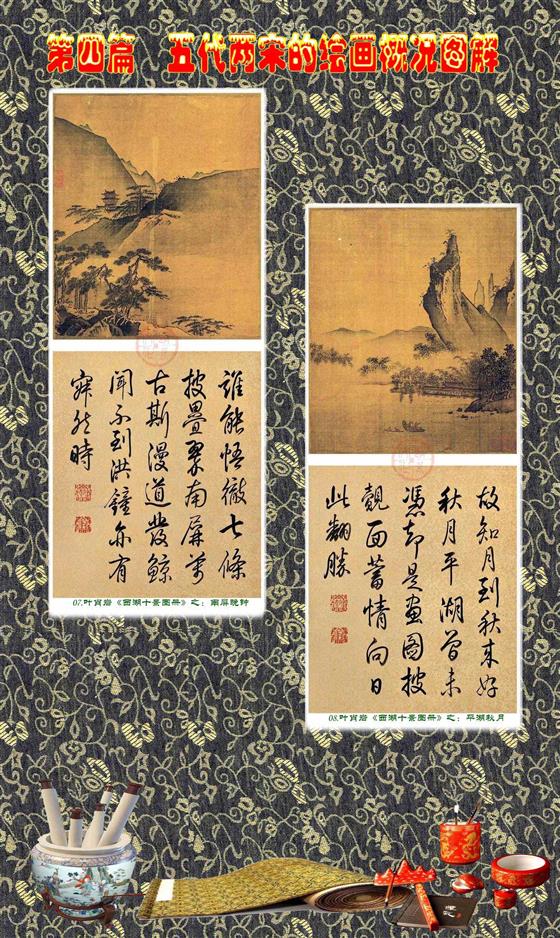 第四篇 五代两宋的绘画概况图解
誰能悟徹七條
披疊翠南屏萬
古斯漫道發鯨
聞不到洪鐘亦有
寂然時
07.叶肖岩《西湖十景图册》之：南屏晚钟
故知月到秋来好
秋月平湖曾未
憑却是畫圖披
覿面蓄情向日
此翻勝
08.叶肖岩《西湖十景图册》之：平湖秋月